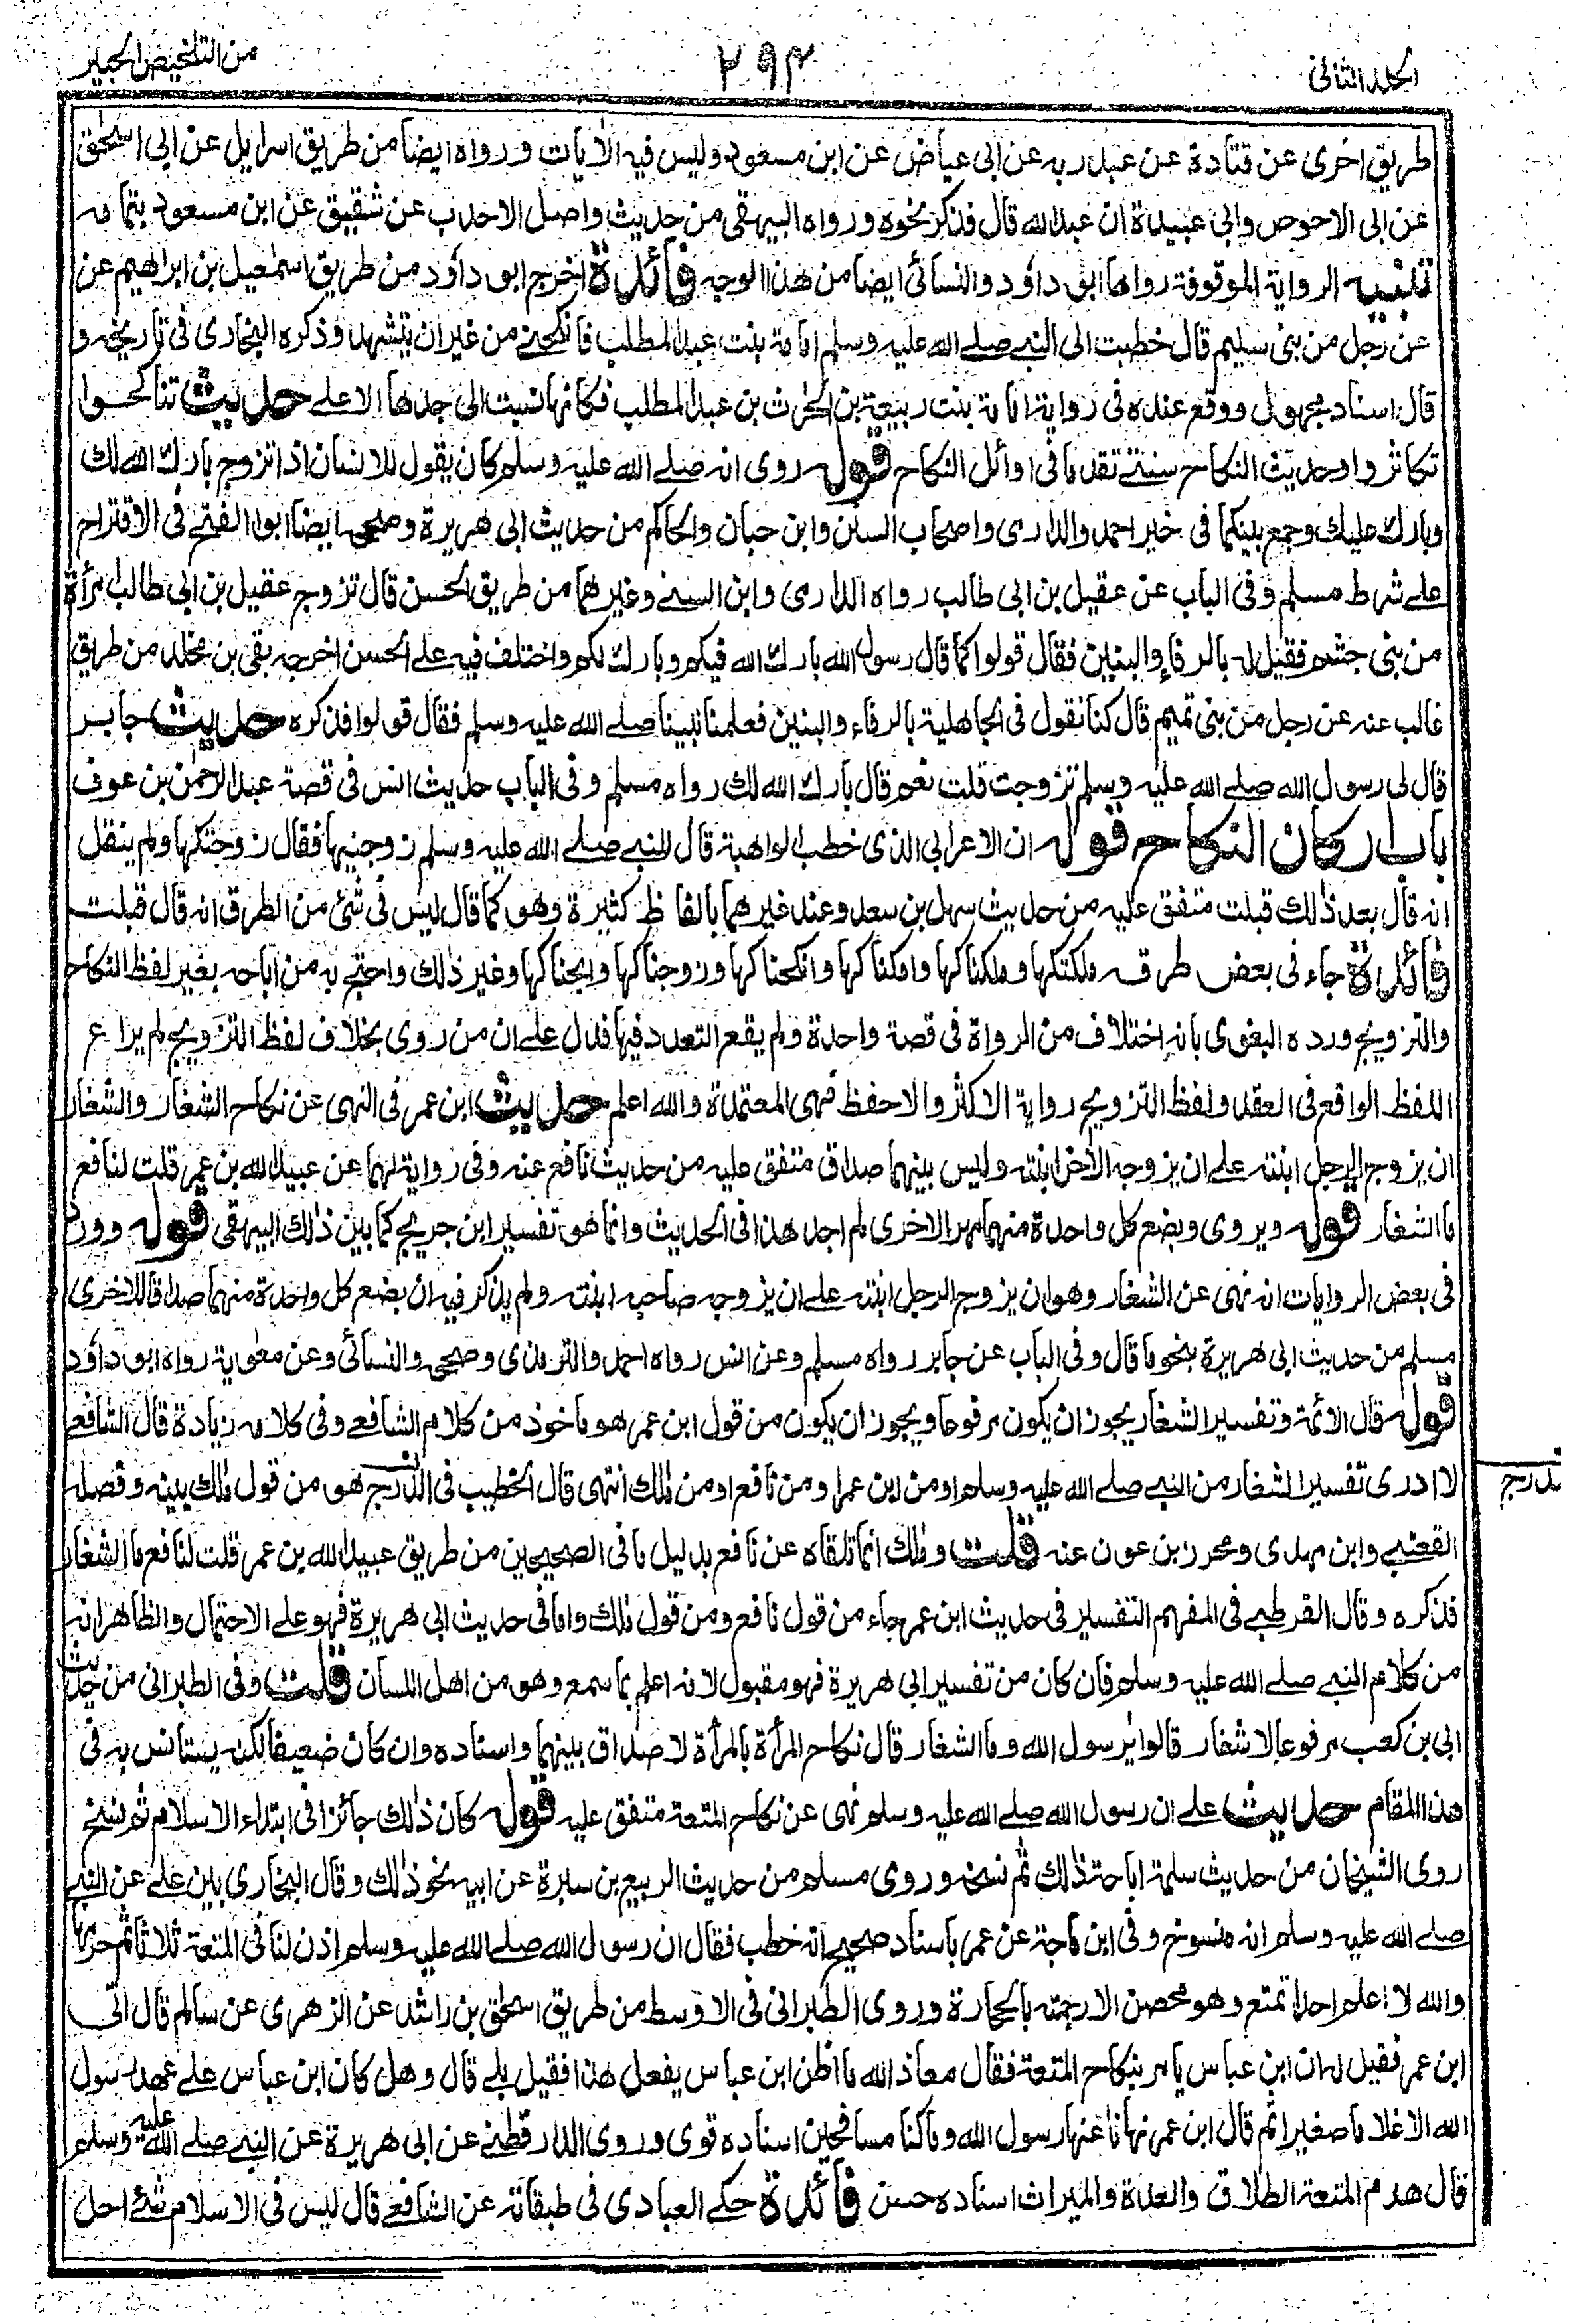 المجلد الثانى
٢٩٣
من التلخيص الحبير
طريق اخرى عن قتادة عن عبد ربه عن ابى عياض عن ابن مسعود وليس فيه الاٰيات ورواه ايضا من طريق اسرايل عن ابى اسحٰق
عن ابى الاحوص وابى عبيدة ان عبدالله قال فذكر نحوه ورواه البيهقى من حديث واصل الاحدب عن شقيق عن ابن مسعود بتمامه
تنبيه الرواية الموقوفة رواها ابو داؤد والنسائى ايضا من هذا الوجه فائدة اخرج ابو داؤد من طريق اسمٰعيل بن ابراهيم عن
عن رجل من بنى سليم قال خطبت الى النبى صلے الله عليه وسلم امامة بنت عبدالمطلب فانكحنے من غير ان يتشهد وذكره البخارى فى تاريخه و
قال اسناد مجهول ووقع عنده فى رواية امامة بنت ربيعة بن الحٰرث بن عبدالمطلب فكانها نسبت الى جدها الاعلے حديث تناكحوا
تكاثروا وحديث النكاح سنتے تقدما فى اوائل النكاح قوله روى انه صلے الله عليه وسلم كان يقول للانسان اذا تزوج بارك الله لك
وبارك عليك وجمع بينكما فى خير احمد والدارمى واصحاب السنن وابن حبان والحاكم من حديث ابى هريرة وصححه ايضا ابوالفتح فى الاقتراح
علے شرط مسلم وفى الباب عن عقيل بن ابى طالب رواه الدارمى وابن السنے وغيرهما من طريق الحسن قال تزوج عقيل بن ابى طالب امرأة
من بنى جشم فقيل له بالرفاء والبنين فقال قولوا كما قال رسول الله بارك الله فيكم وبارك لكم واختلف فيه علے الحسن اخرجه بقى بن مخلد من طريق
غالب عنه عن رجل من بنى تميم قال كنا نقول فى الجاهلية بالرفاء والبنين فعلمنا نبينا صلے الله عليه وسلم فقال قولوا فذكره حديث جابر
قال لى رسول الله صلے الله عليه وسلم تزوجت قلت نعم قال بارك الله لك رواه مسلم وفى الباب حديث انس فى قصة عبدالرحمٰن بن عوف
باب اركان النكاح قوله ان الاعرابى الذى خطب الواهبة قال للنبے صلے الله عليه وسلم زوجنيها فقال زوجتكها ولم ينقل
انه قال بعد ذٰلك قبلت متفق عليه من حديث سهل بن سعد وعند غيرهما بالفاظ كثيرة وهو كما قال ليس فى شئ من الطرق انه قال قبلت
فائدة جاء فى بعض طرقه ملكتكها وملكناكها وامكناكها وانكحناكها وزوجناكها وابحناكها وغير ذٰلك واحتج به من اباحه بغير لفظ النكاح
والتزويج ورده البغوى بانه اختلاف من الرواة فى قصة واحدة ولم يقع التعدد فيها فدل علے ان من روى بخلاف لفظ التزويج لم يراع
اللفظ الواقع فى العقد ولفظ التزويج رواية الاكثر والاحفظ فهى المعتمدة والله اعلم حديث ابن عمر فى النهى عن نكاح الشغار والشغار
ان يزوج الرجل ابنته علے ان يزوجه الاٰخر ابنته وليس بينهما صداق متفق عليه من حديث نافع عنه وفى رواية لهما عن عبيدالله بن عمر قلت لنافع
ما الشغار قوله ويروى وبضع كل واحدة منهما مهر الاخرى لم اجد هذا فى الحديث وانما هو تفسير ابن جريج كما بين ذٰلك البيهقى قوله وورد
فى بعض الروايات انه نهى عن الشغار وهو ان يزوج الرجل ابنته علے ان يزوجه صاحبه ابنته ولم يذكر فيه ان بضع كل واحدة منهما صداقا للاخرى
مسلم من حديث ابى هريرة بنحو ما قال وفى الباب عن جابر رواه مسلم وعن انس رواه احمد والترمذى وصححه والنسائى وعن معٰوية رواه ابو داؤد
قوله قال الائمة وتفسير الشغار يجوز ان يكون مرفوعا ويجوز ان يكون من قول ابن عمر هو ماخوذ من كلام الشافعے وفى كلامه زيادة قال الشافعے
لا ادرى تفسير الشغار من النبے صلے الله عليه وسلم او من ابن عمر او من نافع او من مٰلك انتهى قال الخطيب فى المدرج هو من قول مٰلك بينه وفصله
مدرج
القعنبے وابن مهدى ومحرز بن عون عنه قلت ومٰلك انما تلقاه عن نافع بدليل ما فى الصحيحين من طريق عبيدالله بن عمر قلت لنافع ما الشغار
فذكره وقال القرطبے فى المفهم التفسير فى حديث ابن عمر جاء من قول نافع ومن قول مٰلك واما فى حديث ابى هريرة فهو علے الاحتمال والظاهر انه
من كلام النبے صلے الله عليه وسلم فان كان من تفسير ابى هريرة فهو مقبول لانه اعلم بما سمع وهو من اهل اللسان قلت وفى الطبرانى من حديث
ابى بن كعب مرفوعا لا شغار قالوا يٰرسول الله وما الشغار قال نكاح المرأة بالمرأة لا صداق بينهما واسناده وان كان ضعيفا لكنه يستانس به فى
هذا المقام حديث على ان رسول الله صلے الله عليه وسلم نهى عن نكاح المتعة متفق عليه قوله كان ذٰلك جائزا فى ابتداء الاسلام ثم نسخ
روى الشيخان من حديث سلمة اباحة ذٰلك ثم نسخه وروى مسلم من حديث الربيع بن سبرة عن ابيه نحو ذٰلك وقال البخارى بين علے عن النبے
صلے الله عليه وسلم انه منسوخ وفى ابن ماجة عن عمر باسناد صحيح انه خطب فقال ان رسول الله صلے الله عليه وسلم اذن لنا فى المتعة ثلاثا ثم حرمها
والله لا اعلم احدا تمتع وهو محصن الا رجمته بالحجارة وروى الطبرانى فى الاوسط من طريق اسحٰق بن راشد عن الزهرى عن سالم قال اتى
ابن عمر فقيل له ان ابن عباس يامر بنكاح المتعة فقال معاذ الله ما اظن ابن عباس يفعل هذا فقيل بلے قال وهل كان ابن عباس علے عهد رسول
الله الا غلاما صغيرا ثم قال ابن عمر نهانا عنها رسول الله وما كنا مسافحين اسناده قوى وروى الدارقطنے عن ابى هريرة عن النبے صلے الله عليه وسلم
قال هدم المتعة الطلاق والعدة والميراث اسناده حسن فائدة حكے العبادى فى طبقاته عن الشافعے قال ليس فى الاسلام شئ احل